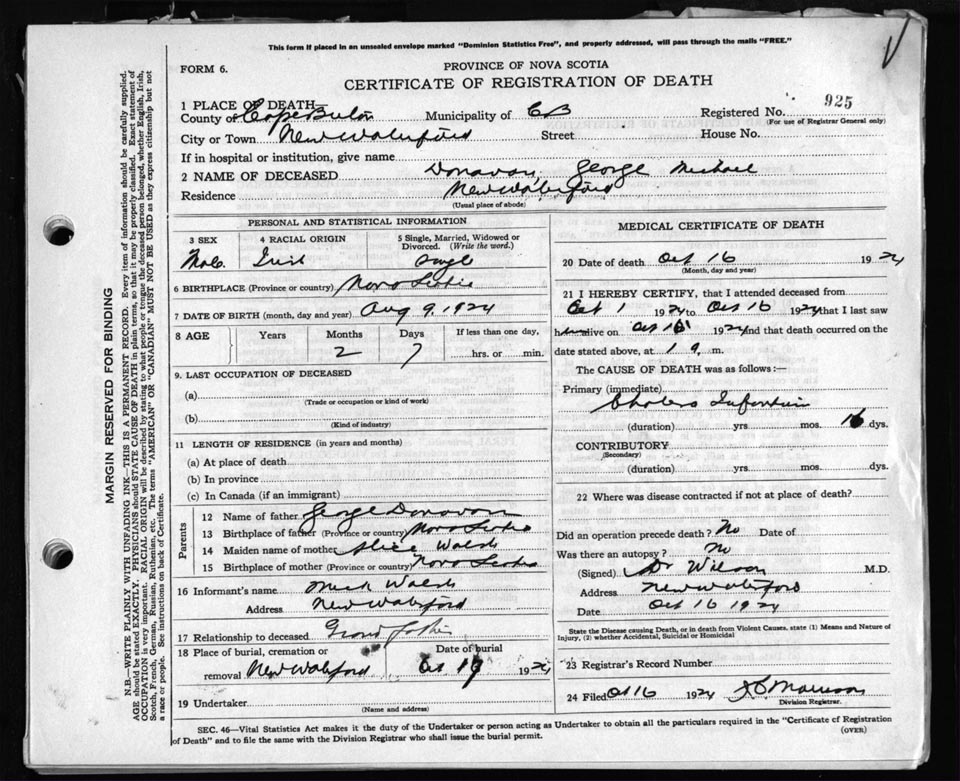 This form if placed in an unsealed envelope marked "Dominion Statistics Free", and properly addressed, will pass through the mails "FREE."
FORM 6.
PROVINCE OF NOVA SCOTIA
CERTIFICATE OF REGISTRATION OF DEATH
1 PLACE OF DEATH
County of Cape Breton Municipality of CB Registered No. 925
(For use of Registrar General only)
City or Town New Waterford Street House No.
If in hospital or institution, give name
2 NAME OF DECEASED Donavan, George Michael
Residence New Waterford
(Usual place of abode)
PERSONAL AND STATISTICAL INFORMATION
3 SEX 4 RACIAL ORIGIN 5 Single, Married, Widowed or Divorced. (Write the word.)
Male. Irish Single
6 BIRTHPLACE (Province or country) Nova Scotia
7 DATE OF BIRTH (month, day and year) Aug 9, 1924
8 AGE Years Months Days If less than one day,
2 7 hrs. or min.
9. LAST OCCUPATION OF DECEASED
(a)
(Trade or occupation or kind of work)
(b)
(Kind of industry)
11 LENGTH OF RESIDENCE (in years and months)
(a) At place of death
(b) In province
(c) In Canada (if an immigrant)
Parents
12 Name of father George Donavan
13 Birthplace of father (Province or country) Nova Scotia
14 Maiden name of mother Alice Walsh
15 Birthplace of mother (Province or country) Nova Scotia
16 Informant's name Mick Walsh
Address New Waterford
17 Relationship to deceased Grand father
18 Place of burial, cremation or removal New Waterford Date of burial Oct 19 1924
19 Undertaker
(Name and address)
MEDICAL CERTIFICATE OF DEATH
20 Date of death Oct 16 1924
(Month, day and year)
21 I HEREBY CERTIFY, that I attended deceased from
Oct 1 1924 to Oct 16 1924 that I last saw
h alive on Oct 16 1924 and that death occurred on the
date stated above, at 1 9. m.
The CAUSE OF DEATH was as follows:—
Primary (immediate)
Cholera Infantum
(duration) yrs mos. 16 dys.
CONTRIBUTORY
(Secondary)
(duration) yrs mos. dys.
22 Where was disease contracted if not at place of death?
Did an operation precede death? No Date of
Was there an autopsy? No
(Signed) Dr Wilson M.D.
Address New Waterford
Date Oct 16 1924
State the Disease causing Death, or in death from Violent Causes, state (1) Means and Nature of Injury, (2) whether Accidental, Suicidal or Homicidal
23 Registrar's Record Number
24 Filed Oct 16 1924
Division Registrar.
SEC. 46—Vital Statistics Act makes it the duty of the Undertaker or person acting as Undertaker to obtain all the particulars required in the "Certificate of Registration
of Death" and to file the same with the Division Registrar who shall issue the burial permit.
(OVER)
MARGIN RESERVED FOR BINDING
N.B.—WRITE PLAINLY WITH UNFADING INK—THIS IS A PERMANENT RECORD. Every item of information should be carefully supplied.
AGE should be stated EXACTLY. PHYSICIANS should STATE CAUSE OF DEATH in plain terms, so that it may be properly classified. Exact statement of
OCCUPATION is very important. RACIAL ORIGIN will be described by stating to what people or tongue the deceased person belonged, whether English, Irish,
Scotch, French, German, Russian, Ruthenian, etc. The terms "AMERICAN" or "CANADIAN" MUST NOT BE USED as they express citizenship but not
a race or people. See instructions on back of Certificate.